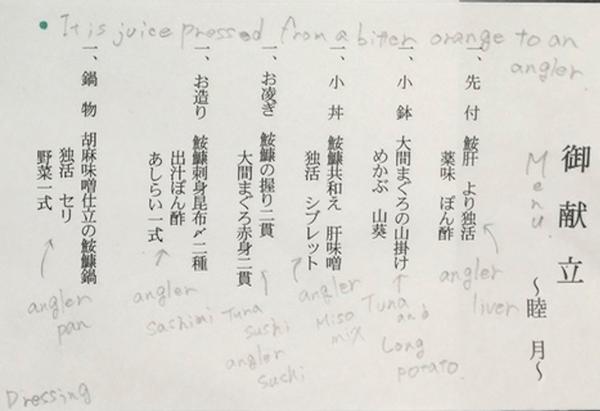 • It is juice pressed from a bitter orange to an
angler
御献立
Menu
～睦 月～
一、先 付 鮟肝 より独活
薬味 ぽん酢
angler
liver
一、小 鉢 大間まぐろの山掛け
めかぶ 山葵
Tuna
and
Long
potato.
一、小 丼 鮟鱇共和え 肝味噌
独活 シブレット
angler
Miso
mix
一、お凌ぎ 鮟鱇の握り二貫
大間まぐろ赤身二貫
Tuna
sushi
angler
sushi
一、お造り 鮟鱇刺身昆布〆二種
出汁ぽん酢
あしらい一式
angler
sashimi
一、鍋 物 胡麻味噌仕立の鮟鱇鍋
独活 セリ
野菜一式
angler
pan
Dressing